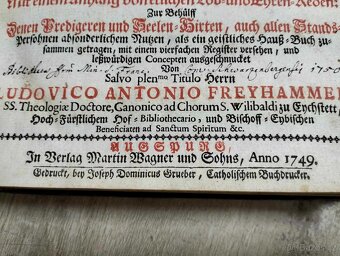 Mit einem Anhang
Lob- und Ehren-Reden.
Zur Behülff
Denen Predigeren und Seelen-Hirten, auch allen Stands-
Persohnen absonderlichen Nutzen, als ein geistliches Hauß-Buch zu-
sammen getragen, mit einem vierfachen Register versehen, und
leßwürdigen Concepten ausgeschmucket
Von
Salvo plenmo Titulo Herrn
LUDOVICO ANTONIO FREYHAMMER
SS. Theologiæ Doctore, Canonico ad Chorum S. Wilibaldi zu Eychstett,
Hoch-Fürstlichem Hof-Bibliothecario, und Bischoff-Eybischen
Beneficiaten ad Sanctum Spiritum &c.
AUGSPURG,
In Verlag Martin Wagner und Sohns, Anno 1749.
Gedruckt, bey Joseph Dominicus Gruber, Catholischem Buchdrucker.